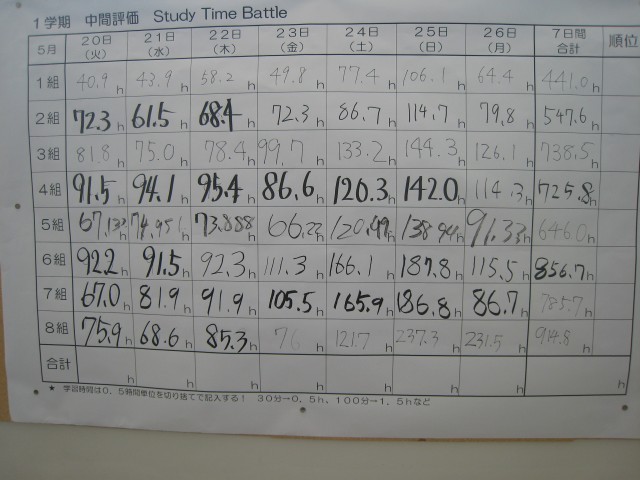 1学期 中間評価 Study Time Battle
5月 20日(火) 21日(水) 22日(木) 23日(金) 24日(土) 25日(日) 26日(月) 7日間合計 順位
1組 40.9h 43.9h 58.2h 49.8h 77.4h 106.1h 64.4h 441.0h
2組 72.3h 61.5h 68.4h 72.3h 86.7h 114.7h 79.8h 547.6h
3組 81.8h 75.0h 78.4h 99.7h 133.2h 144.3h 126.1h 738.5h
4組 91.5h 94.1h 95.4h 86.6h 120.3h 142.0h 114.3h 725.8h
5組 67.132h 74.951h 73.888h 66.22h h h 91.33h 646.0h
6組 92.2h 91.5h 92.3h 111.3h 166.1h 187.8h 115.5h 856.7h
7組 67.0h 81.9h 91.9h 105.5h 165.9h 186.8h 86.7h 785.7h
8組 75.9h 68.6h 85.3h 76h 121.7h 237.3h 231.5h 914.8h
合計 h h h h h h h h
★ 学習時間は0.5時間単位を切り捨てで記入する! 30分→0.5h、100分→1.5hなど